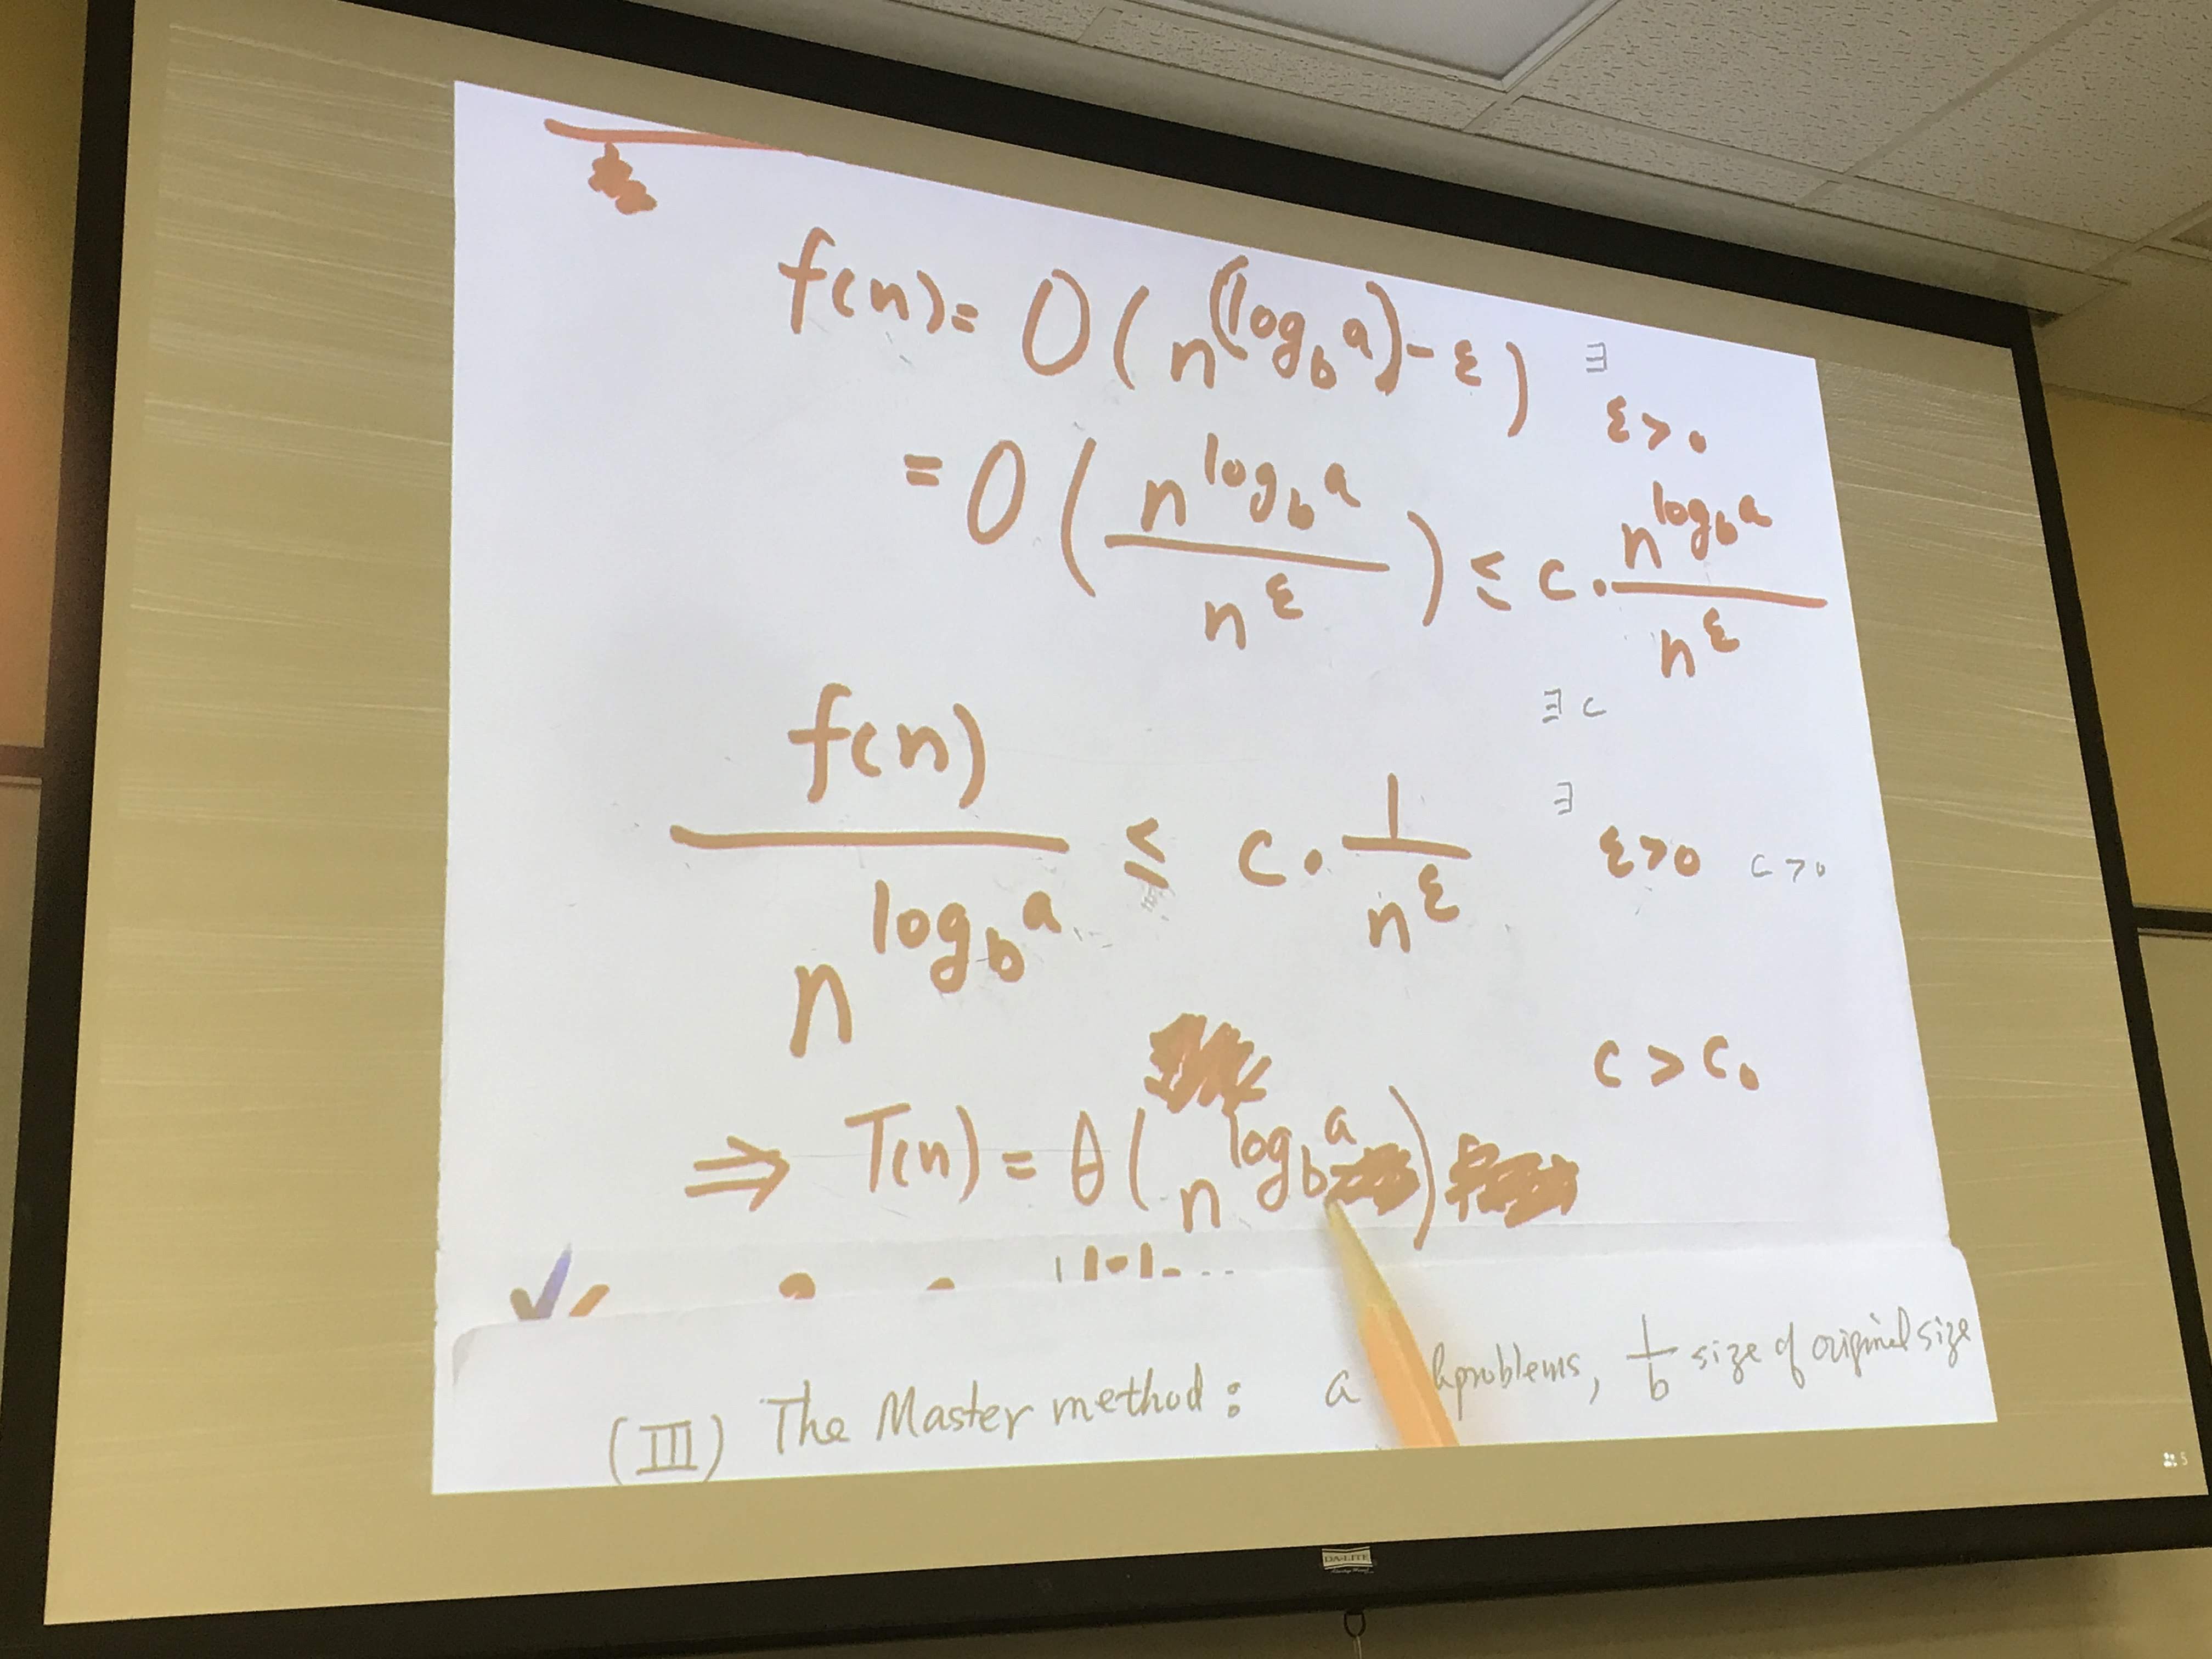 f(n) = O(n^(log_b a) - ε) ∃ ε > 0
= O(n^log_b a / n^ε) ≤ c · n^log_b a / n^ε
∃ c
f(n) / n^log_b a ≤ c · 1 / n^ε ∃ ε > 0 c > 0
c > c₀
⇒ T(n) = θ(n^log_b a)
(III) The Master method : a problems, 1/b size of original size
5
DA-LITE